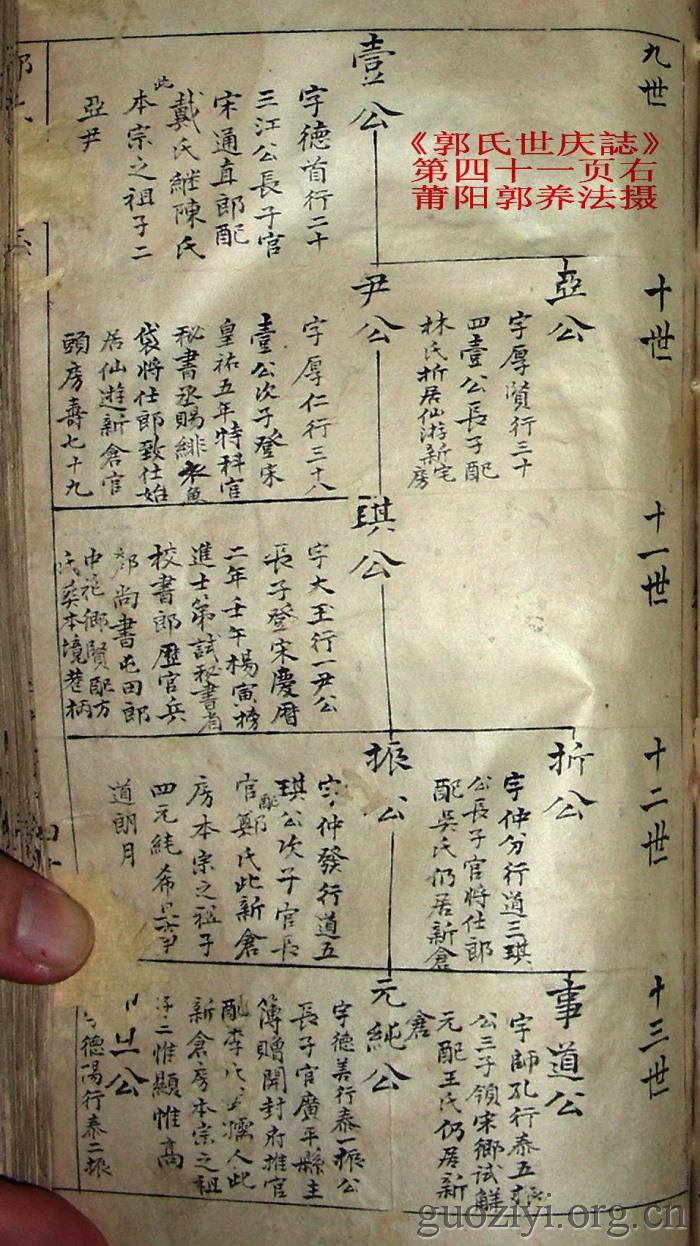 《郭氏世庆誌》
第四十一页右
莆阳郭养法摄
九世
壹公
字德首行二十
三江公長子官
宋通直郎配
戴氏継陳氏
此
本宗之祖子二
亞尹
十世
亞公
字厚賢行三十
四壹公長子配
林氏折居仙游新宅
房
尹公
字厚仁行三十八
壹公次子登宋
皇祐五年特科官
秘書丞賜緋衣魚
袋將仕郎致仕始
居仙遊新倉官
頭房壽七十九
十一世
琪公
字大王行一尹公
長子登宋慶曆
二年壬午楊寘榜
進士第試秘書省
校書郎歷官兵
部尚書屯田郎
中祀鄉賢配方
氏葬本境巷柄
十二世
折公
字仲分行道三琪
公長子官將仕郎
配吳氏仍居新倉
振公
字仲發行道五
琪公次子官長
官配鄭氏此新倉
房本宗之祖子
四元純希事
道朗月
十三世
事道公
字師孔行泰五振
公三子領宋鄉試觧
元配王氏仍居新
倉
元純公
字德美行泰一振公
長子官廣平縣主
簿贈開封府推官
配李氏孺人此
新倉房本宗之祖
子二惟顯惟高
公
德陽行泰二振
guoziyi.org.cn